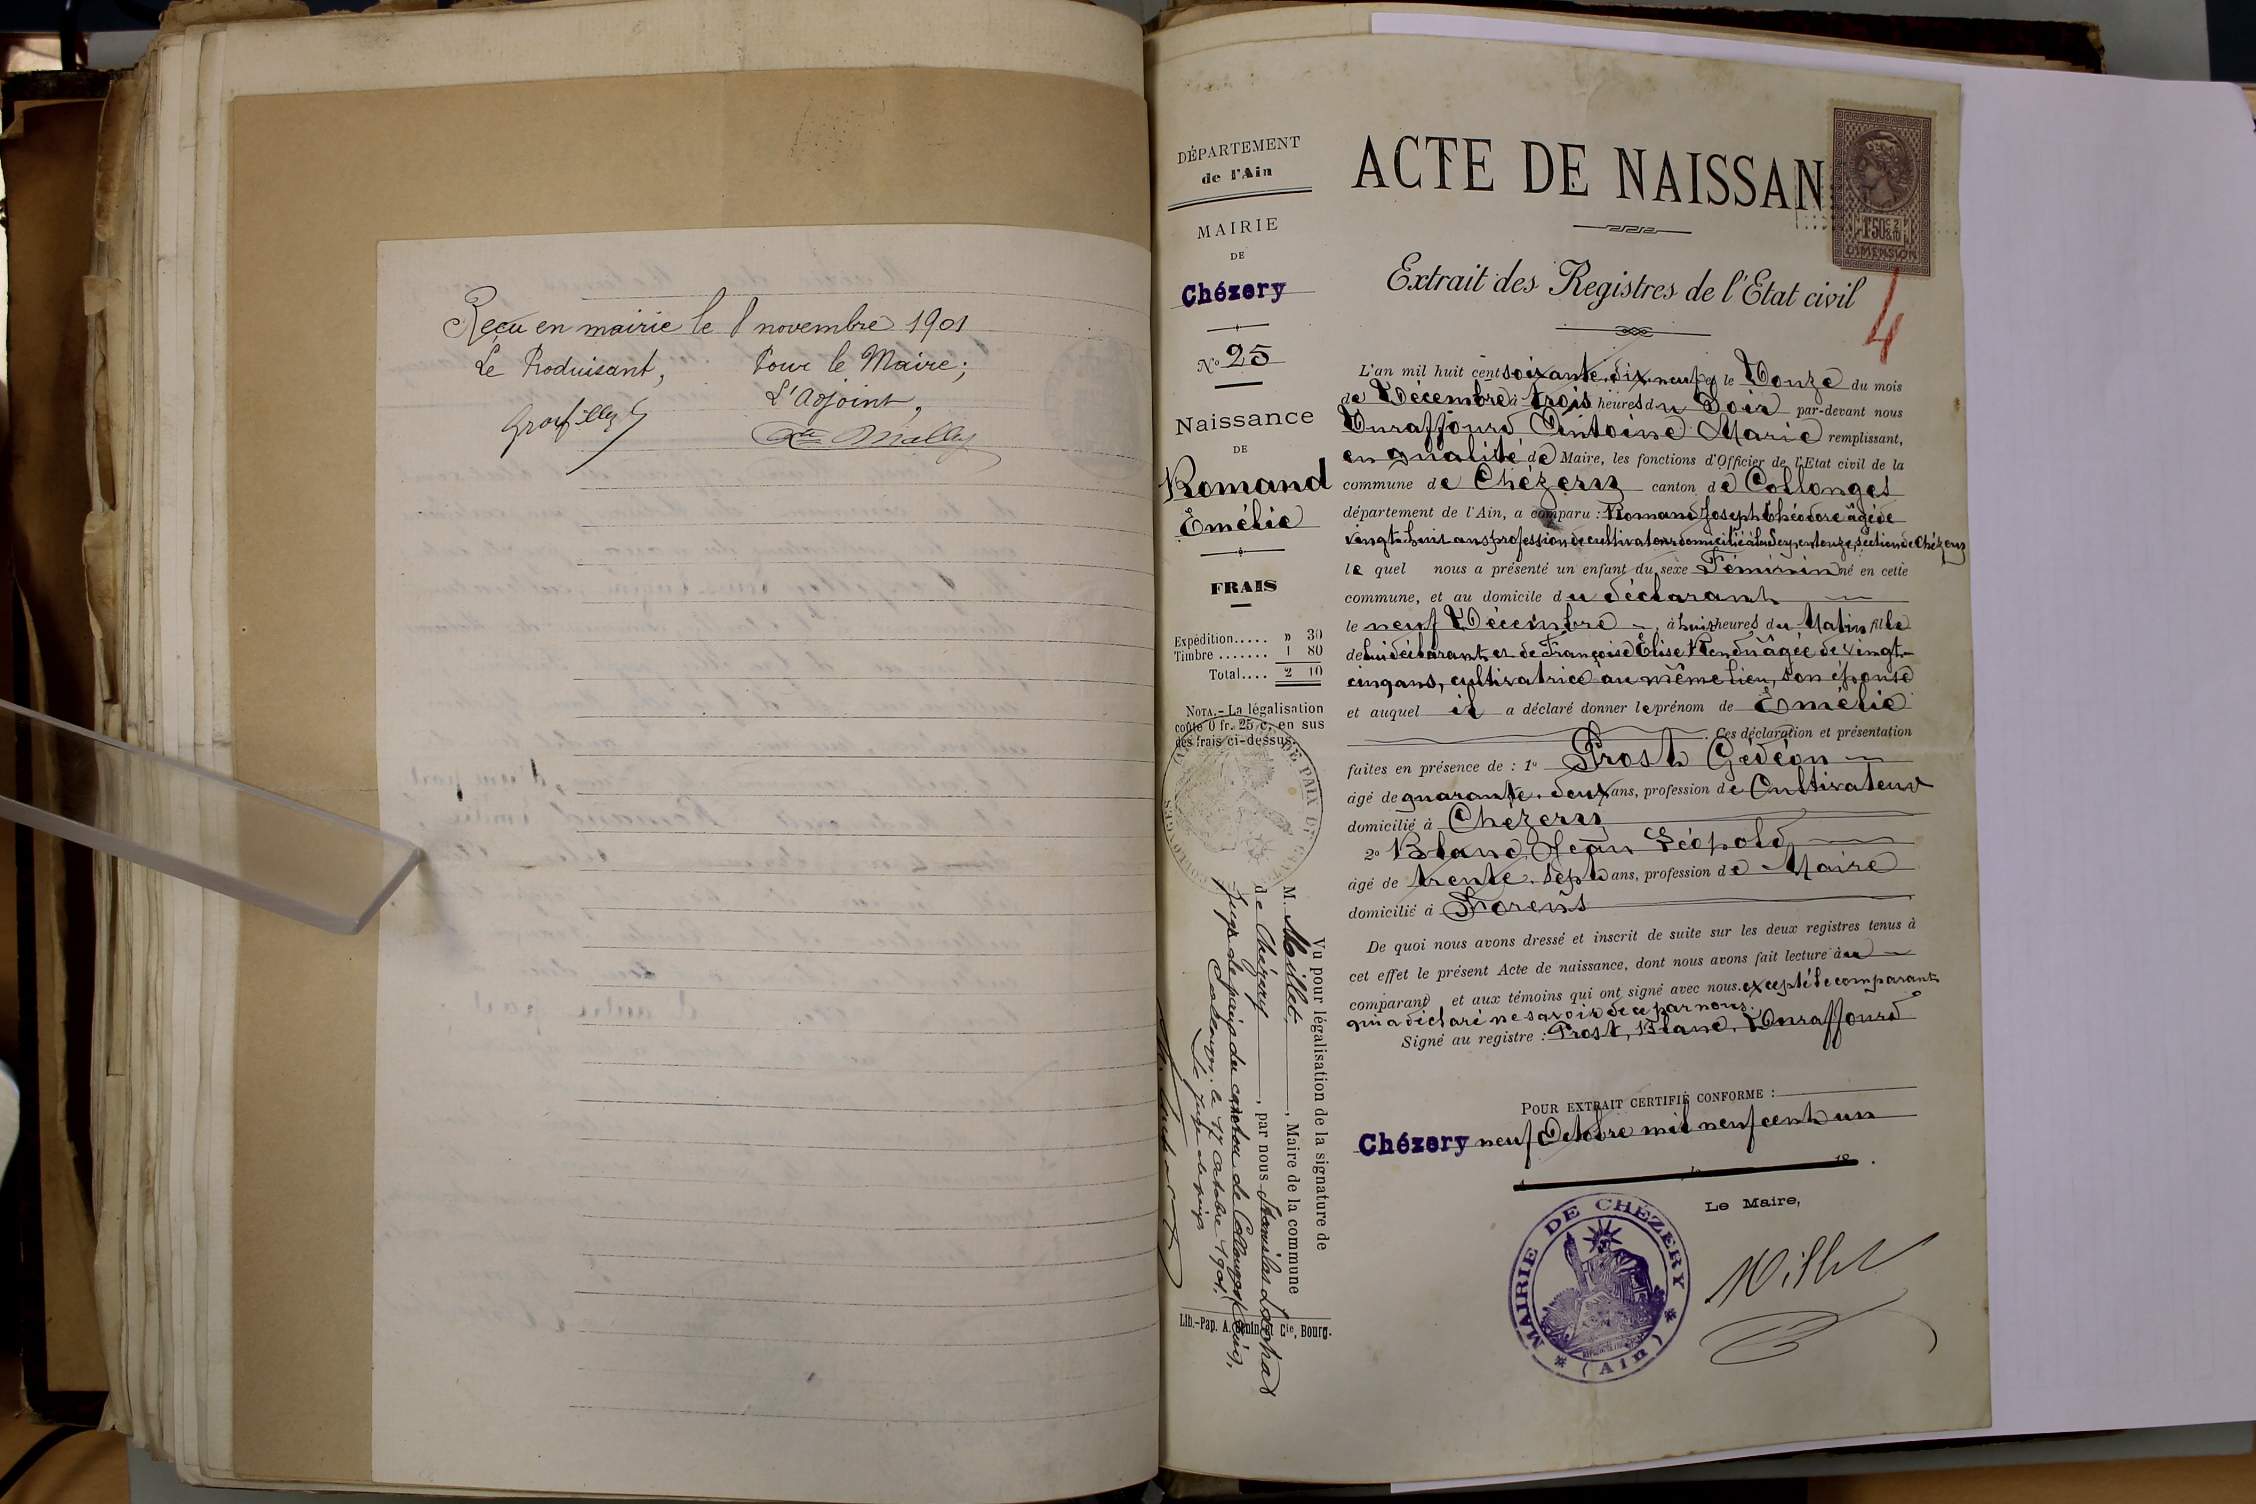 Reçu en mairie le 8 novembre 1901
Le Produisant, Pour le Maire;
L'Adjoint,
Grosfilley Malley
DÉPARTEMENT
de l'Ain
MAIRIE
DE
Chézery
No 25
Naissance
DE
Romand
Émélie
FRAIS
Expédition..... » 30
Timbre....... 1 80
Total.... 2 10
NOTA. - La légalisation
coûte 0 fr. 25 c. en sus
des frais ci-dessus.
Vu pour légalisation de la signature de
M. Maillet, , Maire de la commune
de Chézery , par nous Stanislas
Juge de paix du canton de Collonges (Ain).
Collonges, le 17 octobre 1901.
Le juge de paix
Lib.-Pap. A. & Cie, Bourg.
ACTE DE NAISSAN
1F50c 2/10
DIMENSION
4
Extrait des Registres de l'Etat civil
L'an mil huit cent soixante-dix-neuf et le Douze du mois
de Décembre à trois heures du Soir par-devant nous
Duraffourd Antoine Marie remplissant,
en qualité de Maire, les fonctions d'Officier de l'Etat civil de la
commune de Chézery canton de Collonges
département de l'Ain, a comparu : Romand Joseph Théodore âgé de
vingt-huit ans profession de cultivateur domicilié à la Serpentouze, section de Chézery
le quel nous a présenté un enfant du sexe Féminin né en cette
commune, et au domicile du déclarant
le neuf Décembre , à huit heures du Matin fille
de lui déclarant et de Françoise Élise Rendu âgée de vingt-
cinq ans, cultivatrice au même lieu, son épouse
et auquel il a déclaré donner le prénom de Émélie
Ces déclaration et présentation
faites en présence de : 1o Prost Gédéon
âgé de quarante-deux ans, profession de Cultivateur
domicilié à Chézery
2o Blanc Jean Léopold
âgé de trente-sept ans, profession de Maire
domicilié à Forens
De quoi nous avons dressé et inscrit de suite sur les deux registres tenus à
cet effet le présent Acte de naissance, dont nous avons fait lecture au
comparant et aux témoins qui ont signé avec nous. excepté le comparant
qui a déclaré ne savoir de ce par nous.
Signé au registre : Prost, Blanc, Duraffourd
POUR EXTRAIT CERTIFIÉ CONFORME :
Chézery neuf Octobre mil neuf cent un
le 18 .
Le Maire,
MAIRIE DE CHÉZERY
(Ain)